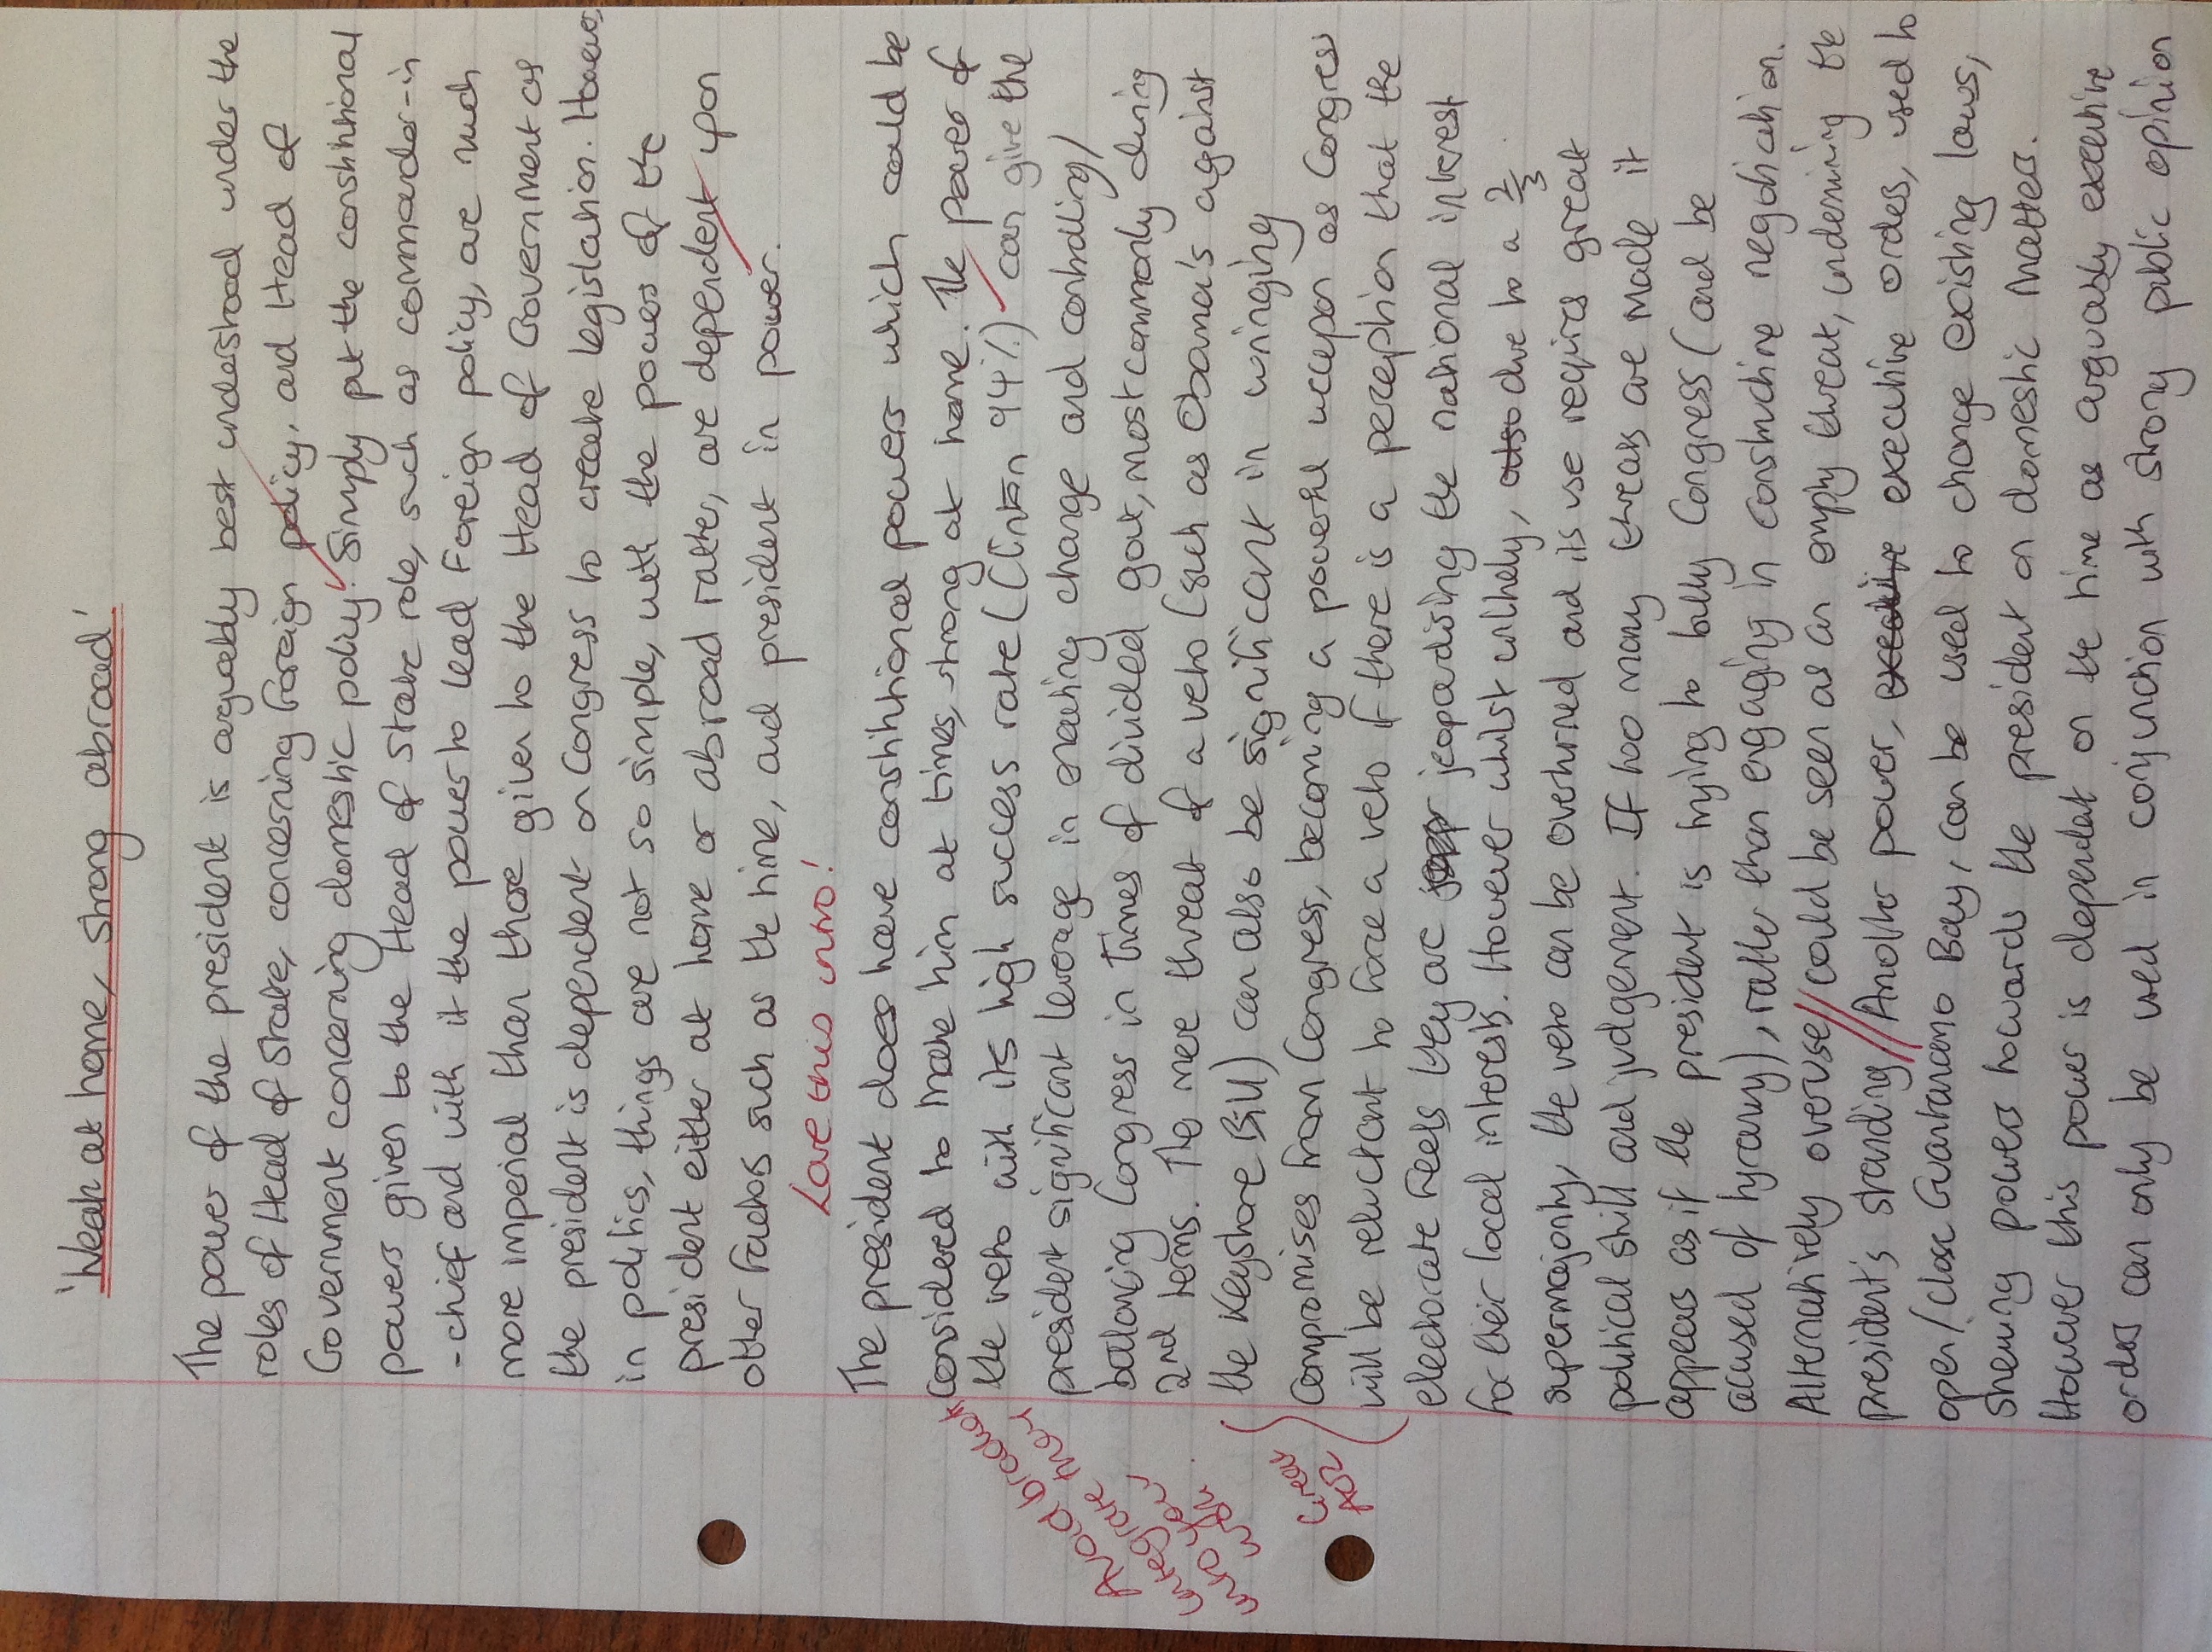 'Weak at home, strong abroad'
The power of the president is arguably best understood under the
roles of Head of State, concerning foreign policy, and Head of
Government concerning domestic policy. Simply put the constitutional
powers given to the Head of State role, such as commander-in
-chief and with it the power to lead foreign policy, are much
more imperial than those given to the Head of Government as
the president is dependent on Congress to create legislation. However,
in politics, things are not so simple, with the powers of the
president either at home or abroad rather, are dependent upon
other factors such as the time, and president in power.
Love this intro!
The president does have constitutional powers which could be
considered to make him at times, strong at home. The power of
the veto with its high success rate (Clinton 94%) can give the
president significant leverage in enacting change and controlling/
balancing Congress in times of divided govt, most commonly during
2nd terms. The mere threat of a veto (such as Obama's against
the Keystone Bill) can also be significant in wringing
compromises from Congress, becoming a powerful weapon as Congress
will be reluctant to force a veto if there is a perception that the
electorate feels they are jeopardising the national interest
for their local interests. However whilst unlikely, also due to a 2/3
supermajority, the veto can be overturned and its use requires great
political skill and judgement. If too many threats are made it
appears as if the president is trying to bully Congress (and be
accused of tyranny), rather than engaging in constructive negotiation.
Alternatively overuse // could be seen as an empty threat, undermining the
president's standing // Another power, executive executive orders, used to
open/close Guantanamo Bay, can be used to change existing laws,
skewing powers towards the president on domestic matters.
However this power is dependent on the time as arguably executive
orders can only be used in conjunction with strong public opinion
Good
more
into
Great